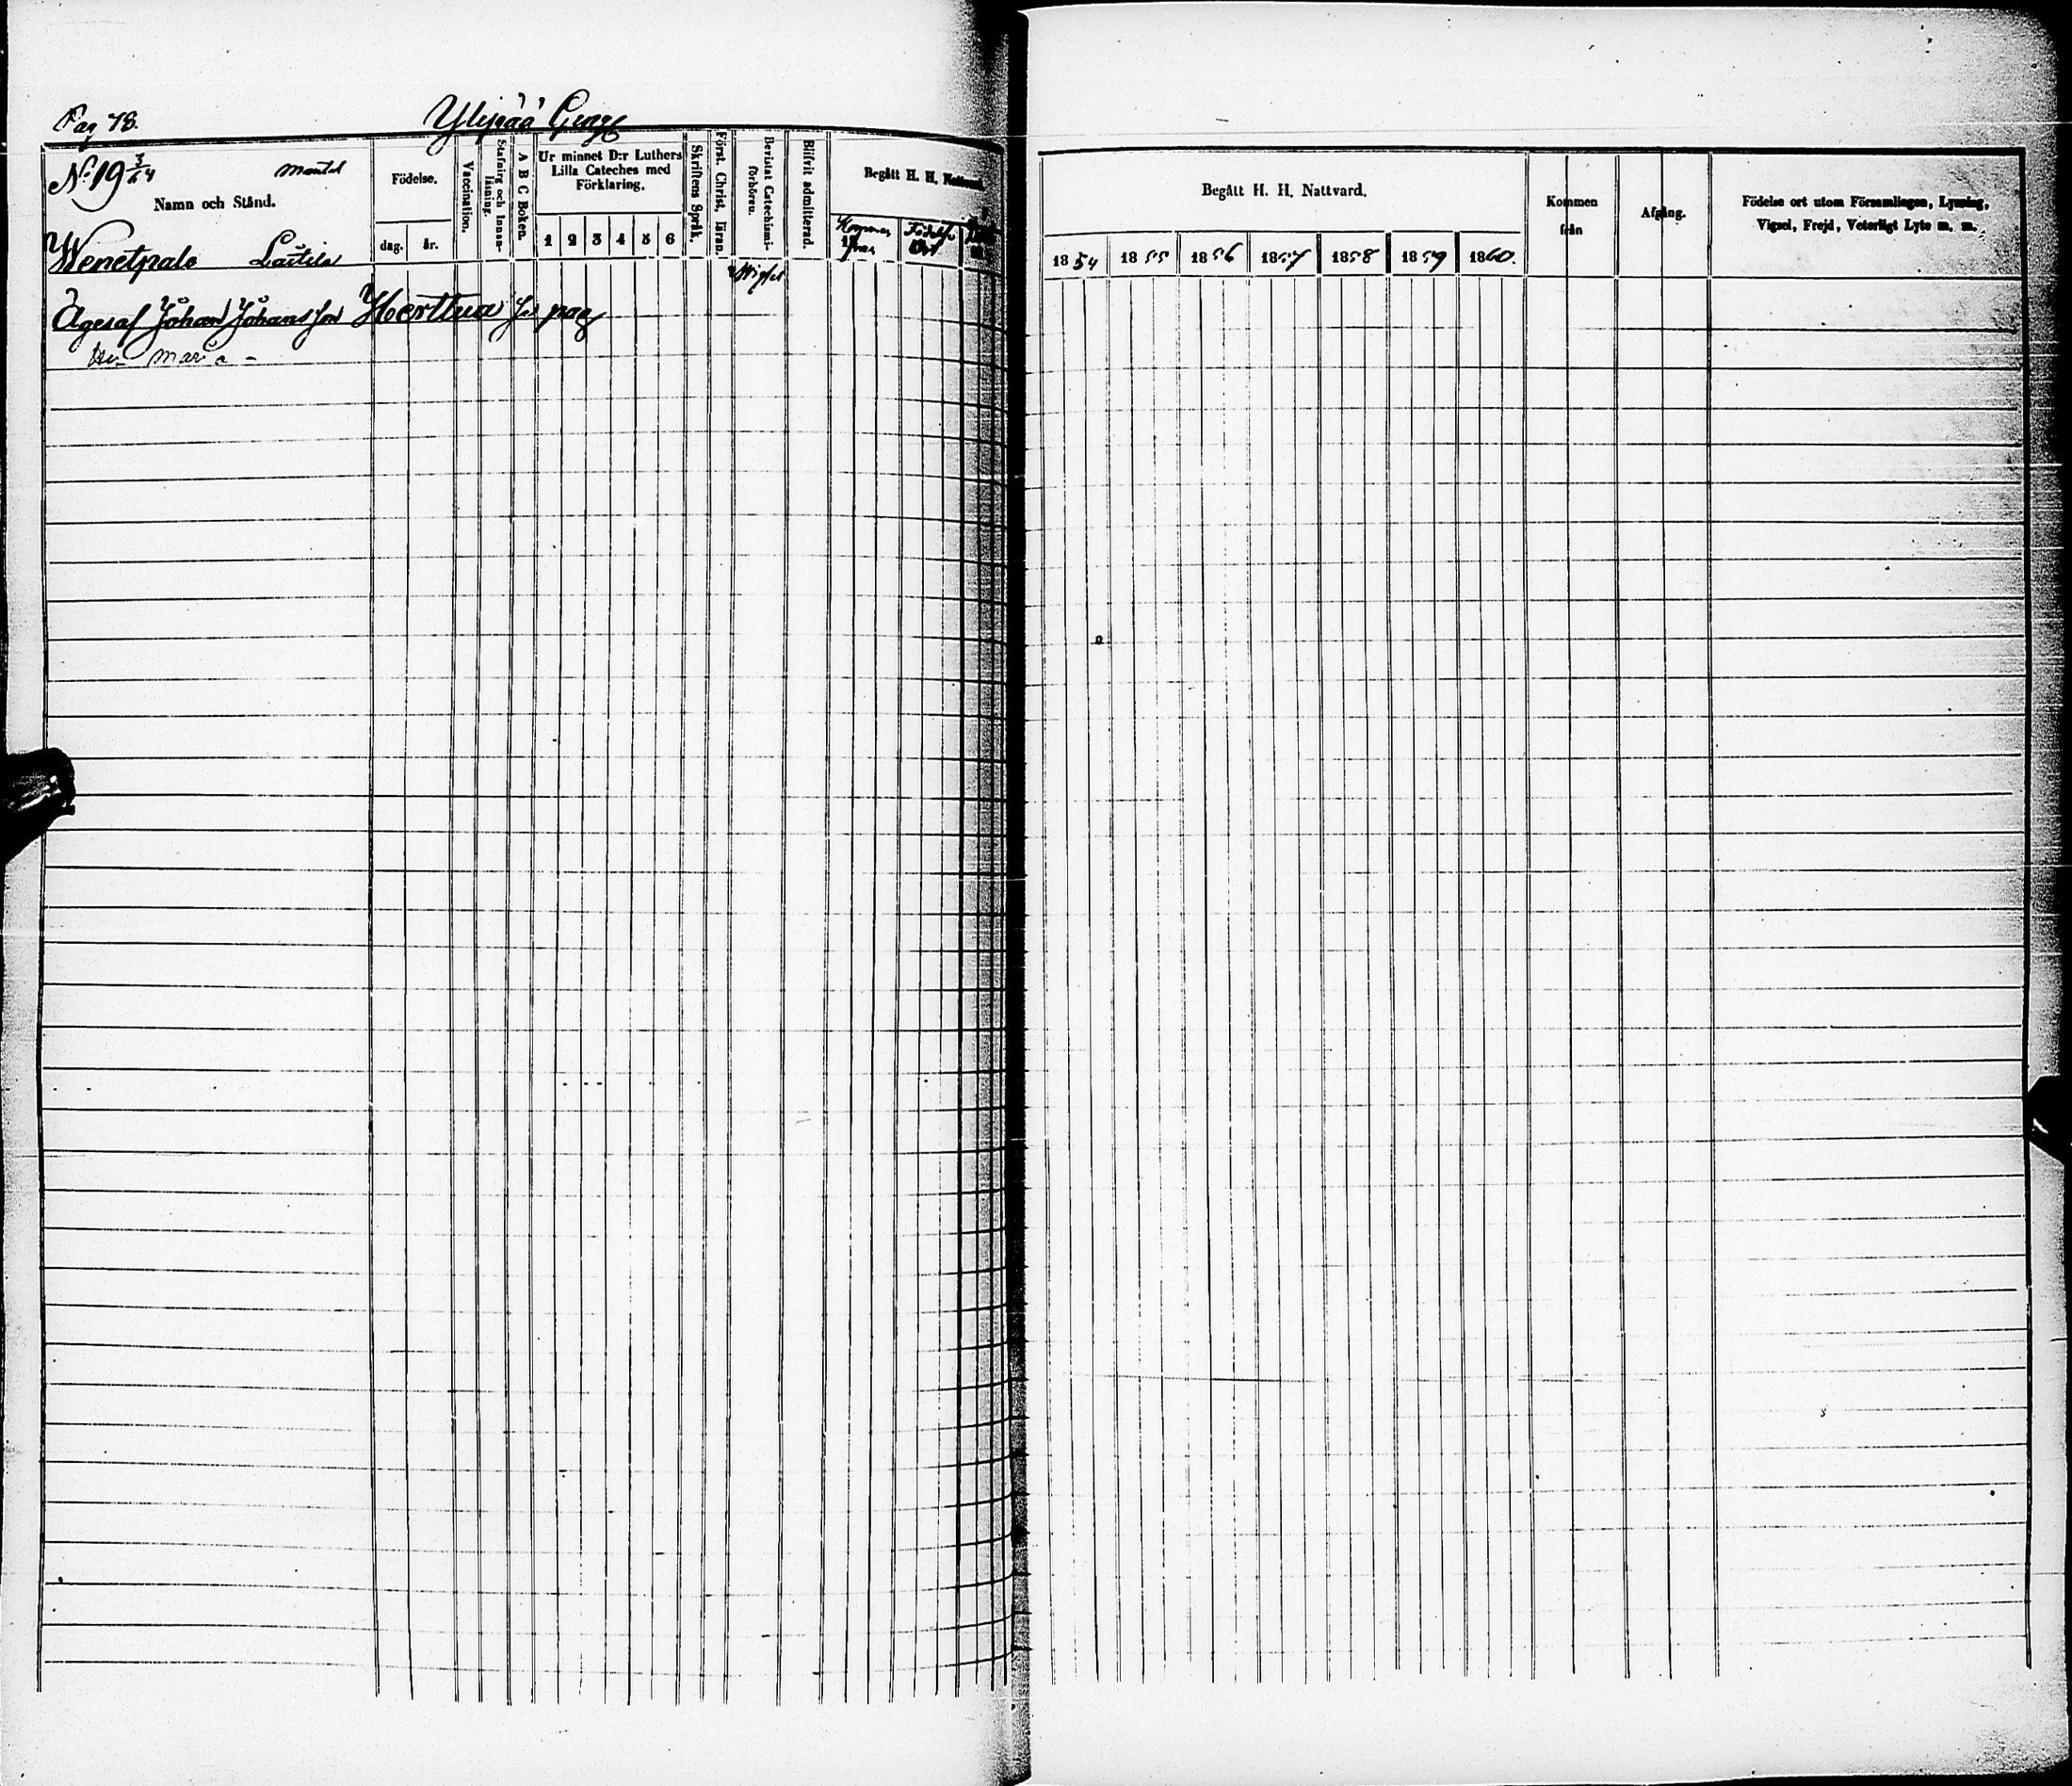 Pag 78.
Ylipää
No: 19 3/64 mantal
Namn och Stånd.
Födelse.
dag. år.
Vaccination.
Stafning och Innan-
läsning.
A B C Boken.
Ur minnet D:r Luthers
Lilla Cateches med
Förklaring.
1 2 3 4 5 6
Skriftens Språk.
Först. Christ. läran.
Bevistat Catechismi-
förhören.
Blifvit admitterad.
Begått H. H. Nattvard.
Födelse
Ort
Wenetpalo Laitila
Wigsel
Ägaraf Johan Johansson Herttua
Hu Maria
Begått H. H. Nattvard.
1854 1855 1856 1857 1858 1859 1860.
Kommen
från
Afgång.
Födelse ort utom Församlingen, Lysning,
Vigsel, Frejd, Veterligt Lyte m. m.